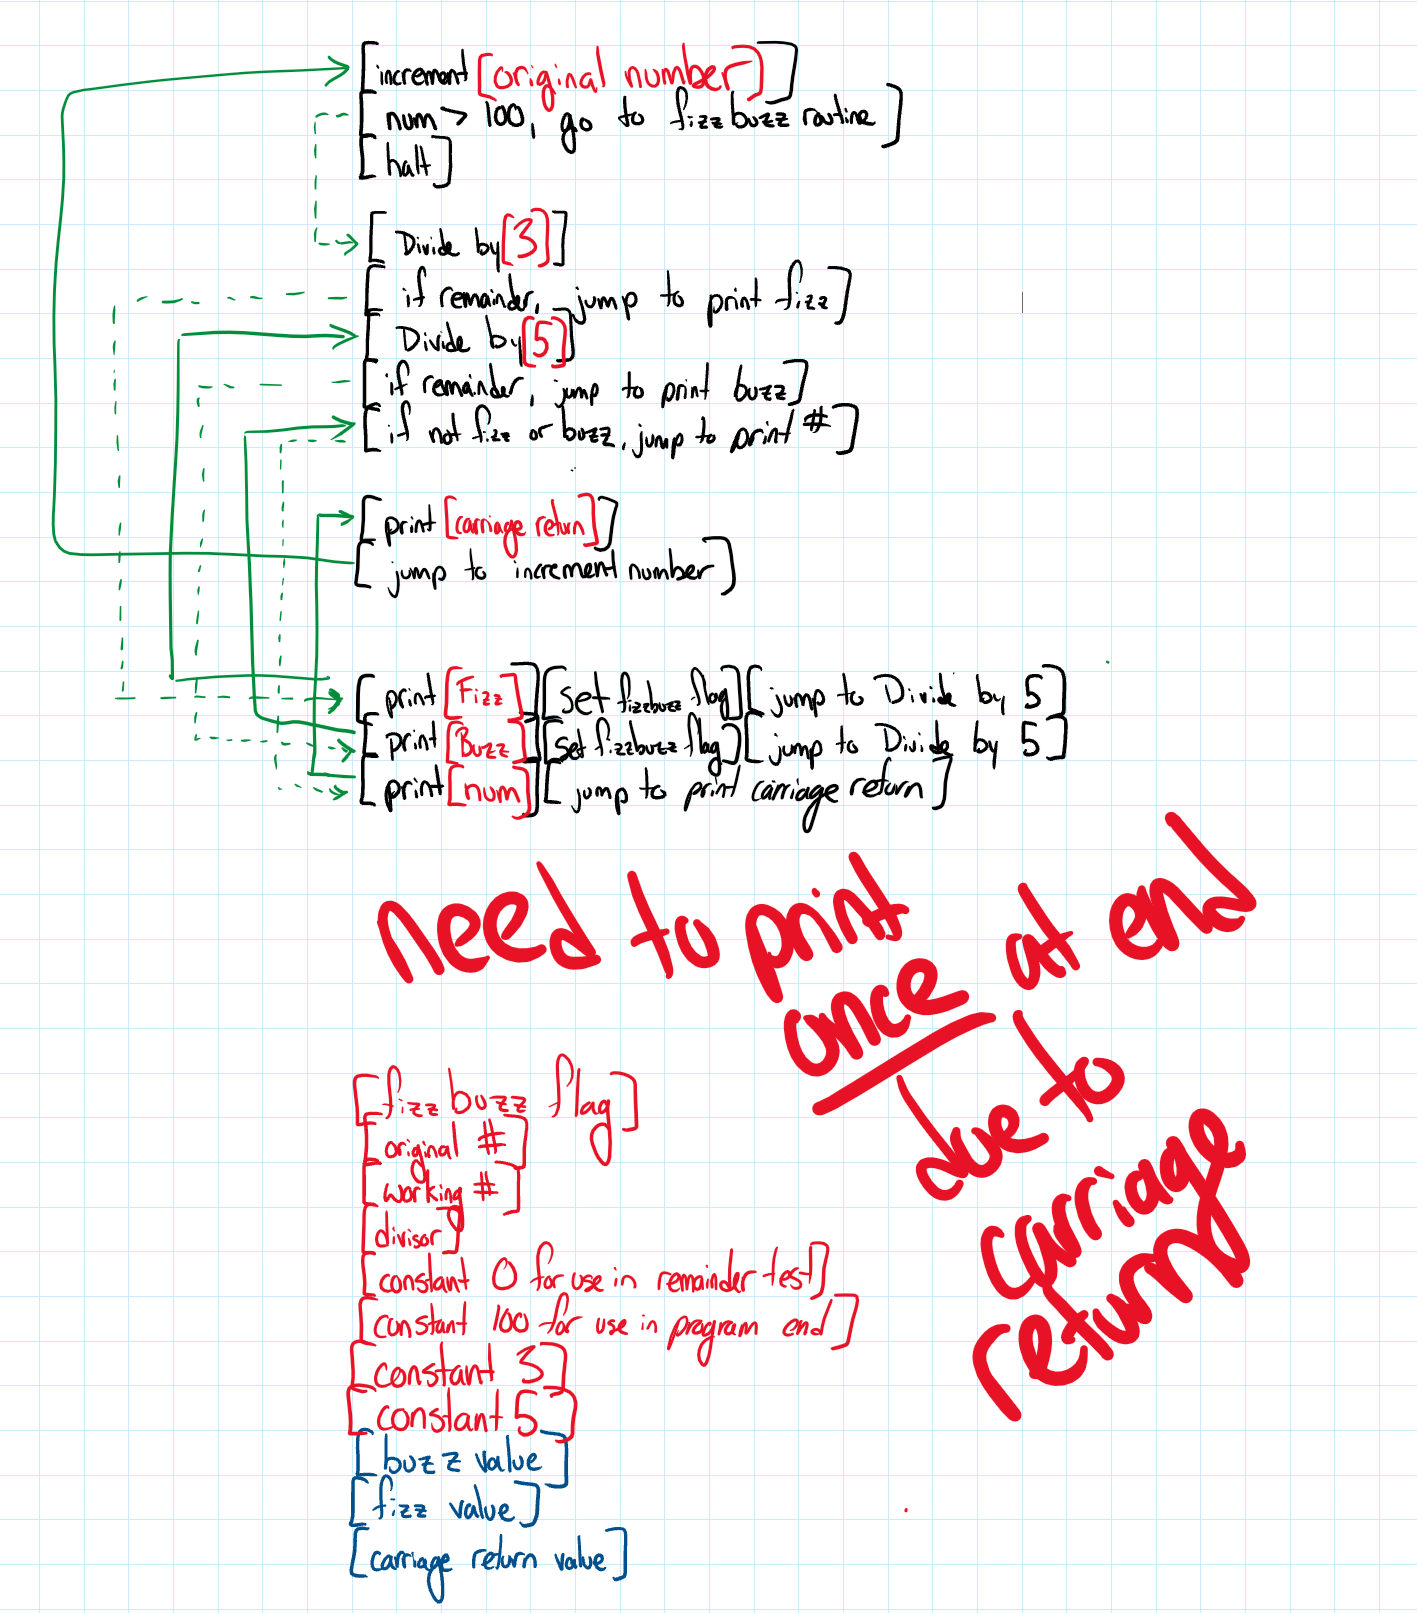 [increment [original number]]
[num > 100, go to fizzbuzz routine]
[halt]
[Divide by [3]]
[if remainder, jump to print fizz]
[Divide by [5]]
[if remainder, jump to print buzz]
[if not fizz or buzz, jump to print #]
[print [carriage return]]
[jump to increment number]
[print [Fizz]] [set fizzbuzz flag] [jump to Divide by 5]
[print [Buzz]] [set fizzbuzz flag] [jump to Divide by 5]
[print [num]] [jump to print carriage return]
need to print
once at end
due to
carriage
return
[fizz buzz flag]
[original #]
[working #]
[divisor]
[constant 0 for use in remainder test]
[constant 100 for use in program end]
[constant 3]
[constant 5]
[buzz value]
[fizz value]
[carriage return value]